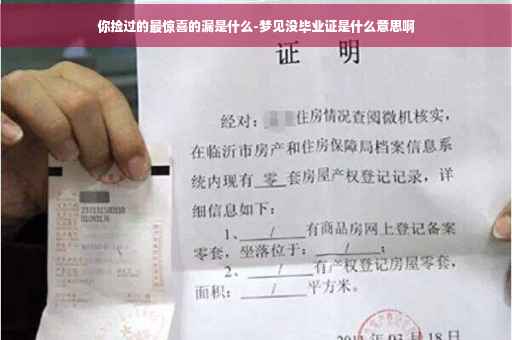 你捡过的最惊喜的漏是什么-梦见没毕业证是什么意思啊
证 明
经对：住房情况查阅微机核实，
在临沂市房产和住房保障局档案信息系
统内现有 零 套房屋产权登记记录，详
细信息如下：
1、 / 有商品房网上登记备案
零套，坐落位于： / ；
2、 / 有产权登记房屋零套，
面积： / 平方米。
03月18日